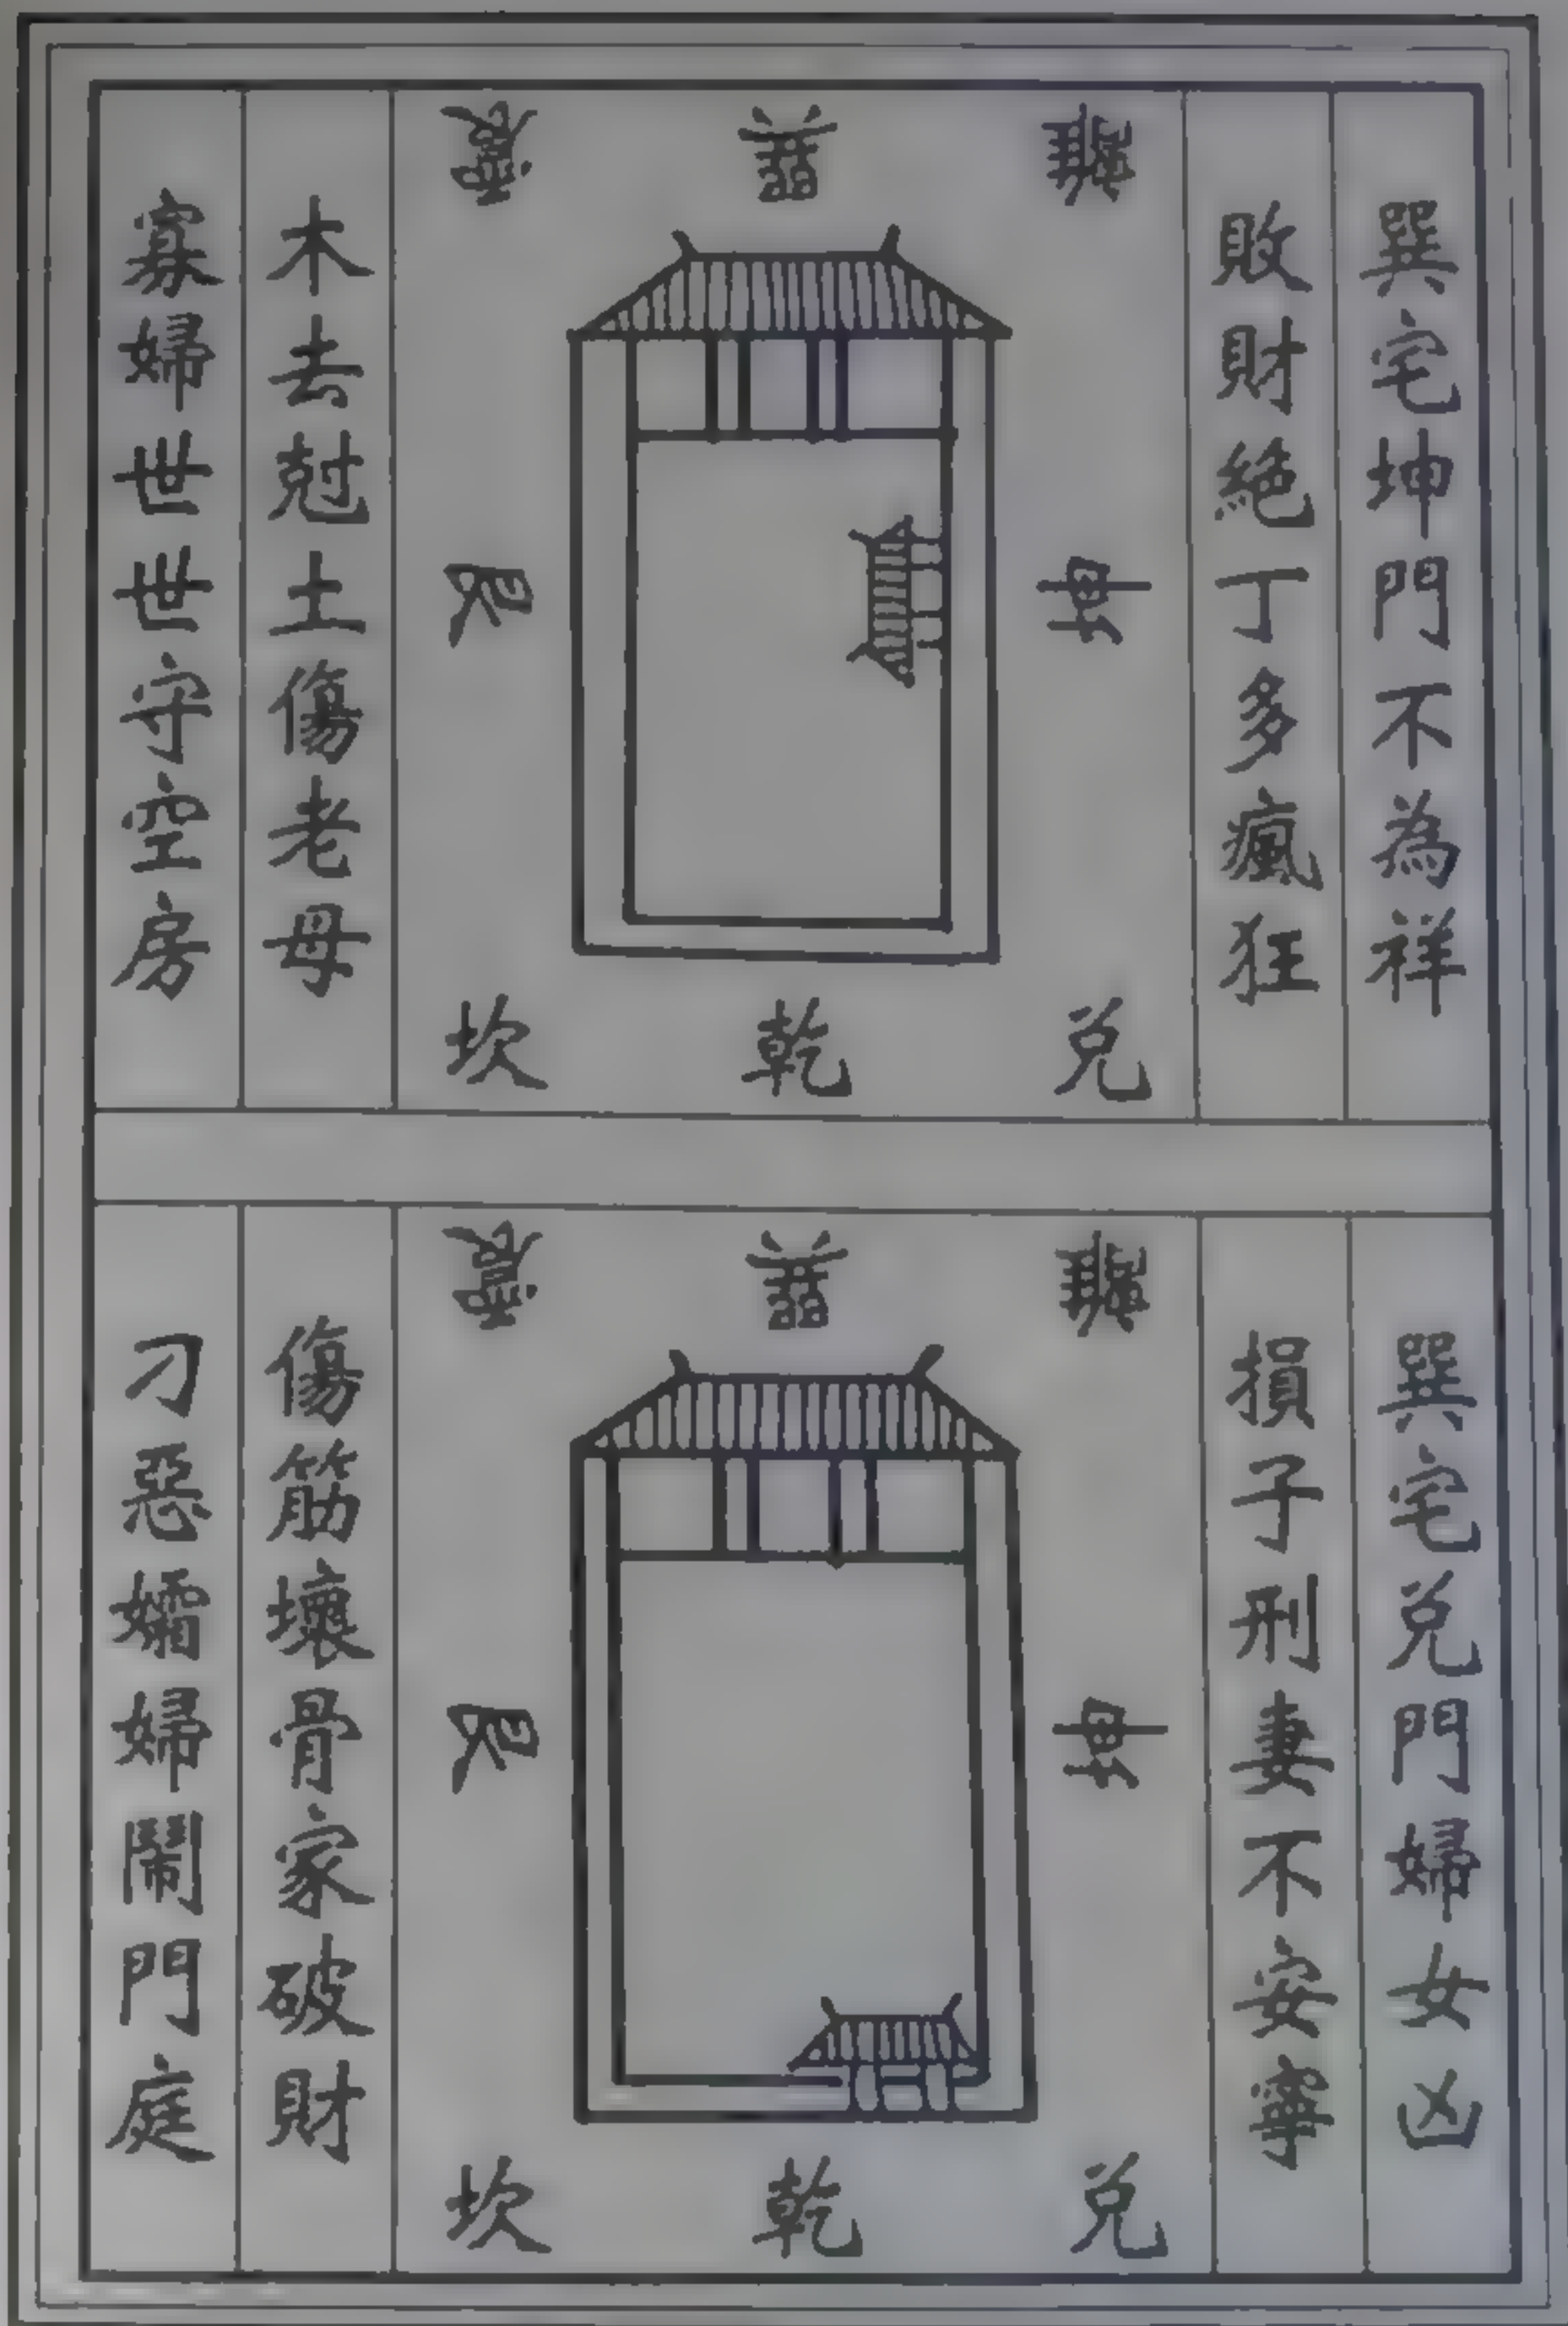 巽宅坤門不為祥
敗財絶丁多瘋狂
震
巽
離
艮
坤
坎
乾
兑
木去尅土傷老母
寡婦世世守空房
巽宅兑門婦女凶
損子刑妻不安寧
震
巽
離
艮
坤
坎
乾
兑
傷筋壞骨家破財
刁惡孀婦鬧門庭